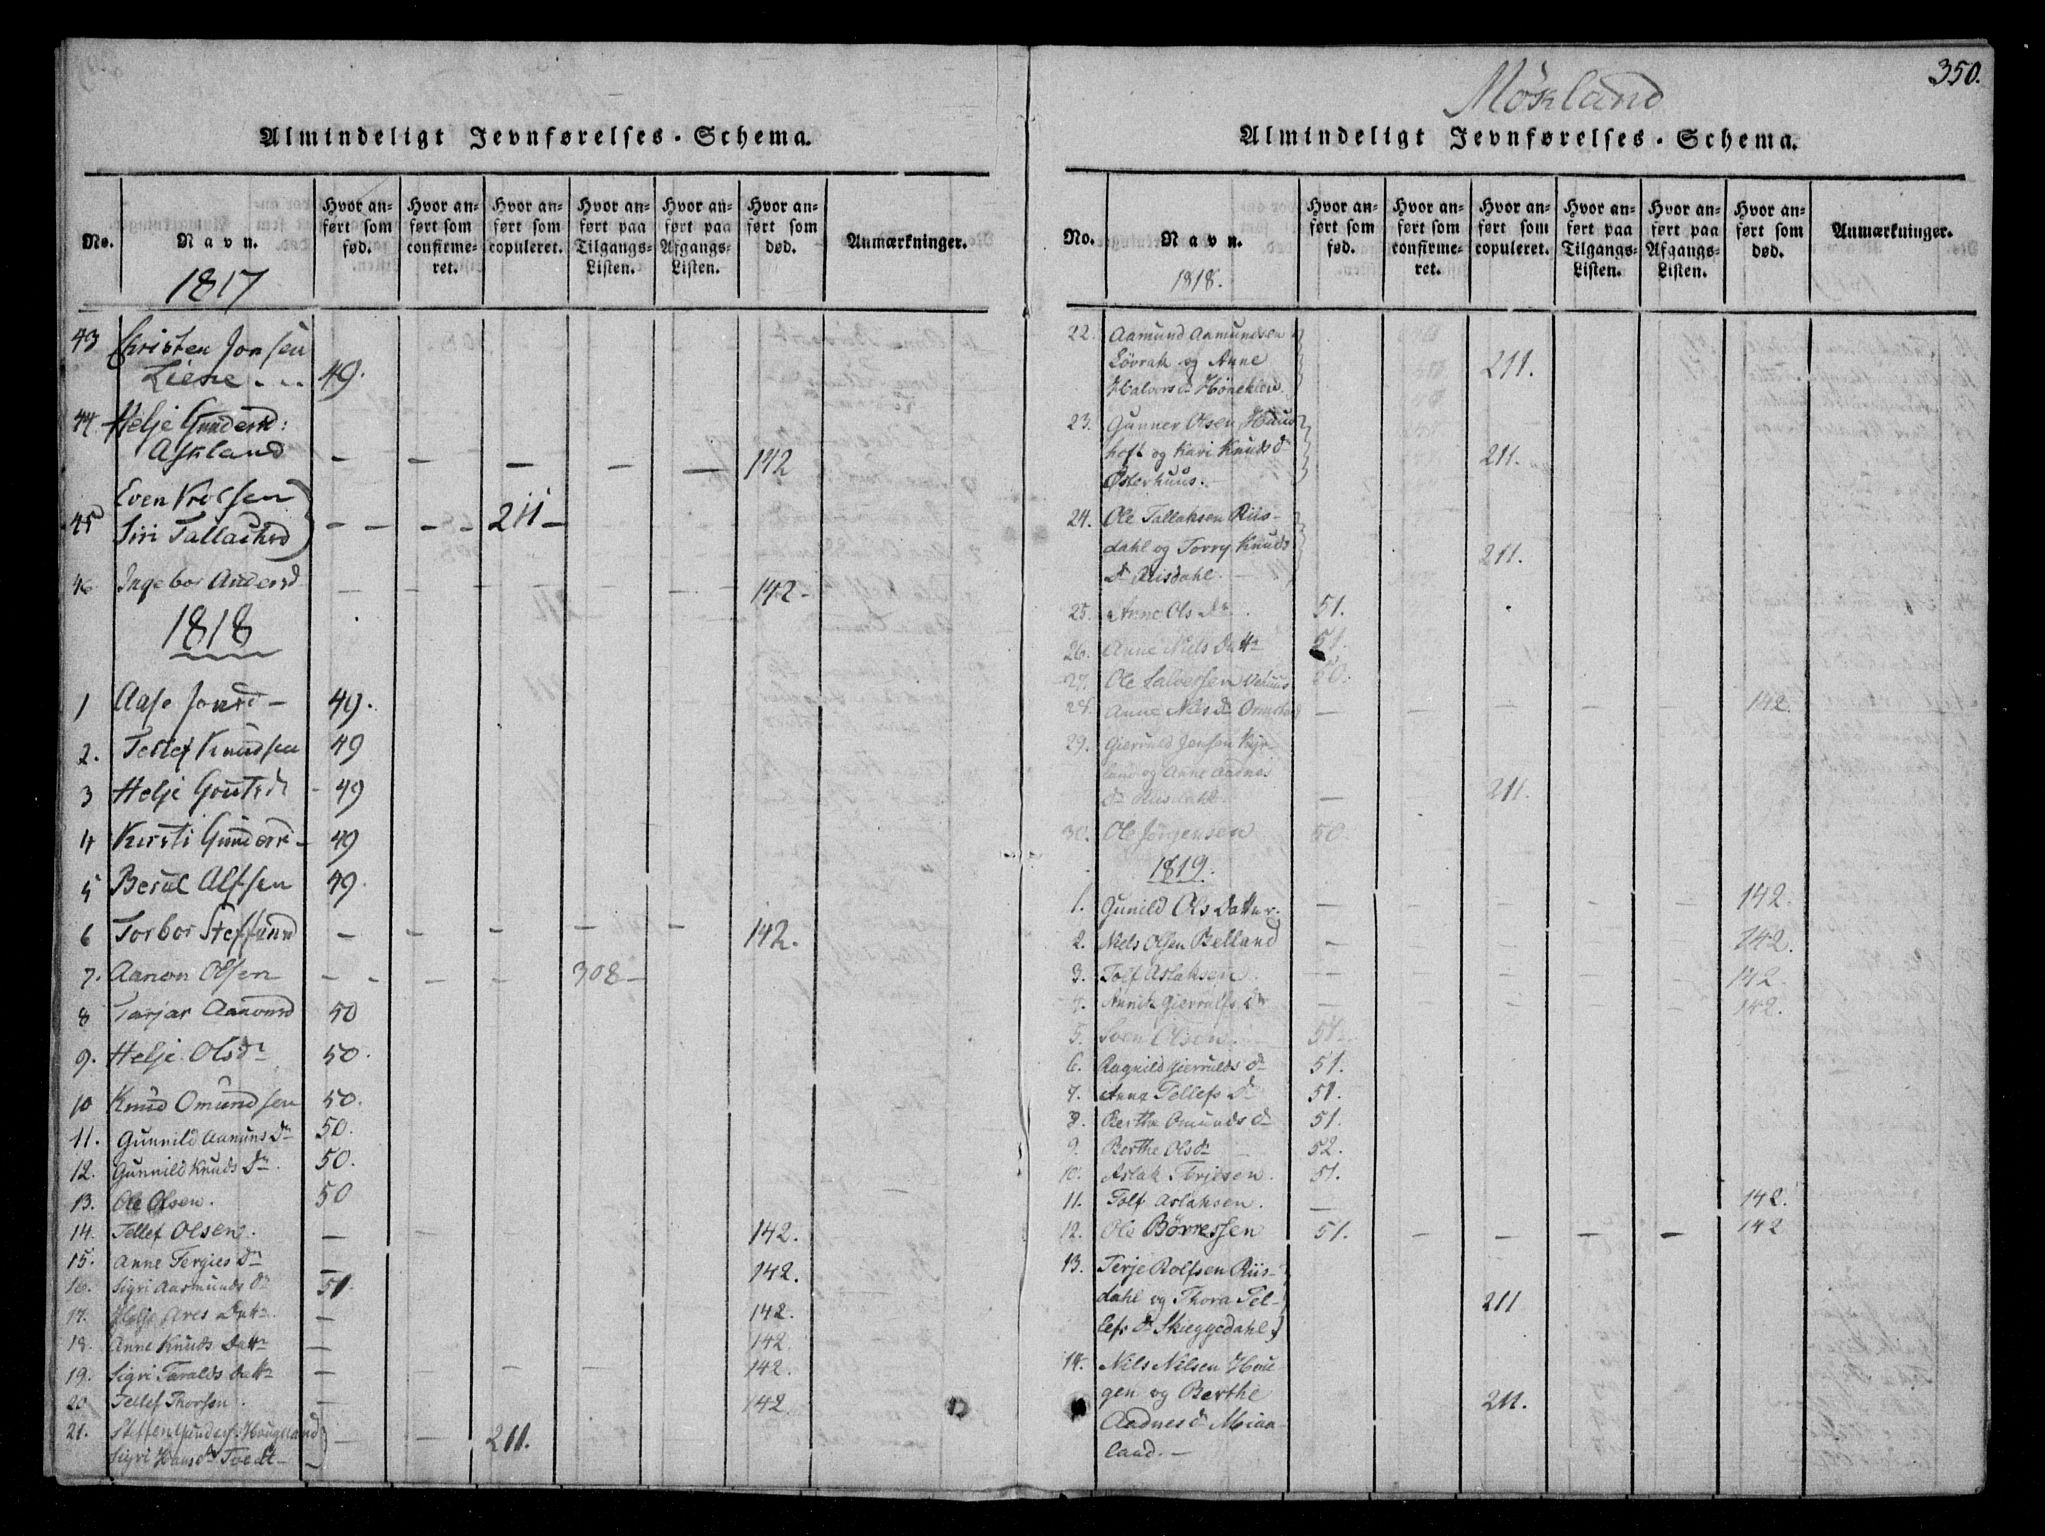 Almindeligt Jevnførelses-Schema.
No. Navn. Hvor anført som fød. Hvor anført som confirmeret. Hvor anført som copuleret. Hvor anført paa Tilgangs-Listen. Hvor anført paa Afgangs-Listen. Hvor anført som død. Anmærkninger.
1817
43 Christen Jonsen
Liene 49.
44 Helje Gunderd:
Askland — — — — — 142
Even
45 Siri Tallachsd — — 211 —
46 Ingebor Andersd — — — 142.
1818
1 Aase Jonsd — 49.
2. Tellef Knudsen 49
3 Helje Goutsd - 49
4 Kirsti Gundersd — 49
5 Berul Alfsen 49.
6 Torbor — — — — — 142.
7. Aanon Olsen — — — — 308 —
8 Tarjar Aanonsd 50
9. Helje Olsdr 50.
10 Knud Omundsen 50.
11. Gunnild Aamunsdr 50.
12. Gunnild Knudsdr. 50.
13. Ole Olsen. 50
14. Tellef Olsen. — — 142.
15. Anne Tergies Dr — 142.
16. Sigri Aasmunds dr 51.
17. Datr. — 142.
18. Anne Knuds Datr — 142
19. Sigri Taralds Datr — — — 142.
20. Tellef Thorsen. — 142
21. Steffen Gunders: Hougland — — 211.
Sigri Hansdr Tvedt —
350.
Møkland
Almindeligt Jevnførelses-Schema.
No. Navn. Hvor anført som fød. Hvor anført som confirmeret. Hvor anført som copuleret. Hvor anført paa Tilgangs-Listen. Hvor anført paa Afgangs-Listen. Hvor anført som død. Anmærkninger.
1818.
22. Aamund Aamundsen
Løvrak og Anne 211.
Halvorsdr
23. Gunner Olsen
og Kari Knudsdr 211.
Østerhuus.
24. Ole Tallaksen Riis-
dahl og Torry Knuds
dr Riisdahl. 211.
25. Anne Ols Dr 51.
26. Anne Niels Datr 51.
27. Ole 50.
28. Anne Nils dr — — — 142.
29. Gierruld Jensen
land og Anne Aadnes
dr Riisdahl. — — 211.
30. Ole Jørgensen 50.
1819.
1. Gunild Ols Datter. — — — — — 142.
2. Niels Olsen Belland — — 142.
3. Tolf Aslaksen. — — 142.
4. Gierrulfs Dr — — 142.
5. Sven Olsen. 51.
6. Ragnild Gierrulds dr 51.
7. Anne Tellefs Dr 51.
8. Berthe Omunds dr 51.
9. Berthe Olsdr 52.
10. Aslak Terjesen. 51.
11. Tolf Aslaksen. — 142.
12. Ole Børresen 51. — — — — 142
13. Terje Rolfsen Riis-
dahl og Thora Tel- 211
lefs dr Skieggedahl.
14. Nils Nilsen Hou
gen og Berthe 211.
Aadnes dr
land. —